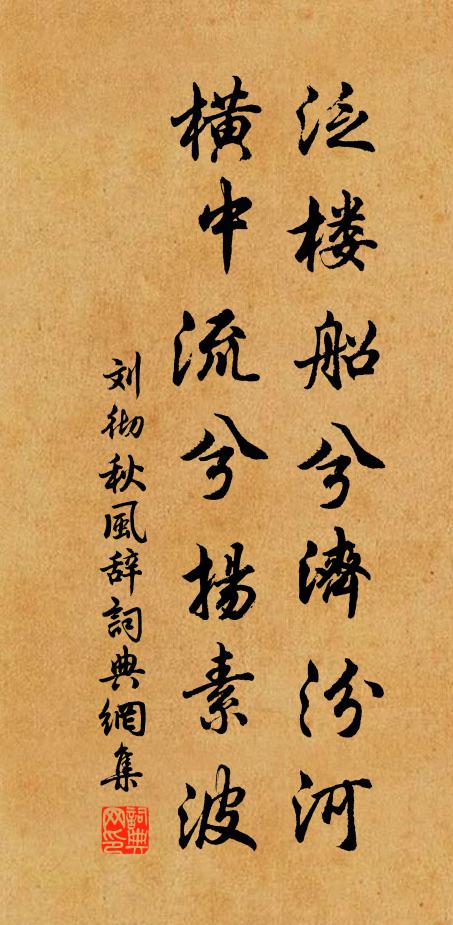 泛楼船兮濟汾河
橫中流兮揚素波
刘彻秋風辞詞典網集
詞典網印